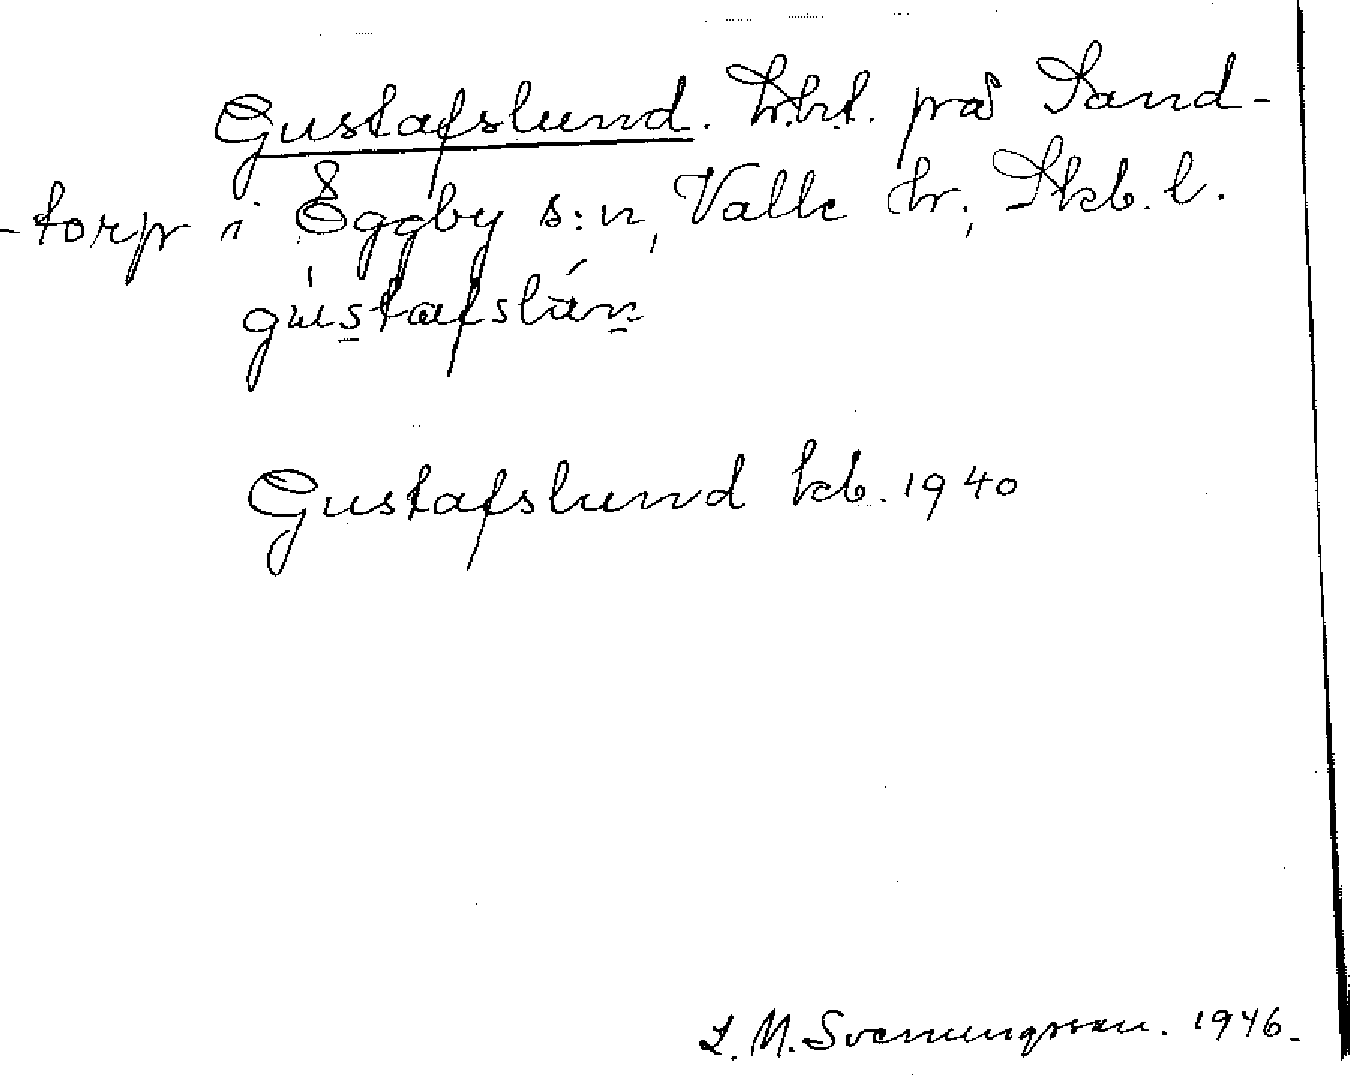 Gustafslund. på Sand-
-torp i Eggby s:n, Valle hr., Skb. l.
gustafslán
Gustafslund kb. 1940
L. M. Svenungsson. 1946.